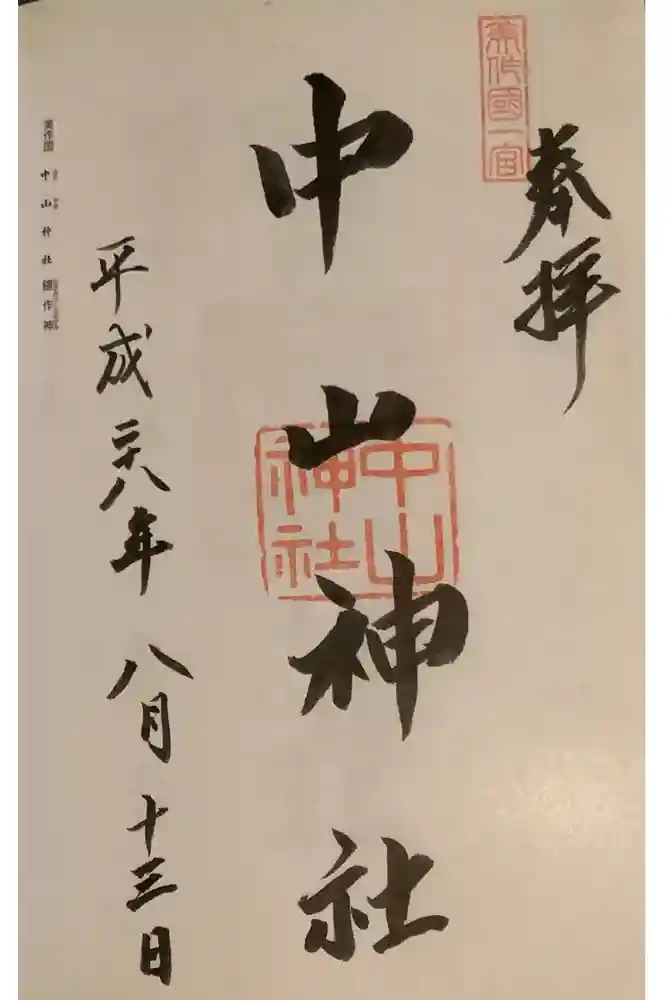 奉拝
美作國一宮
中山神社
中山
神社
平成二十八年 八月十三日
美作国 中山神社 鏡作神